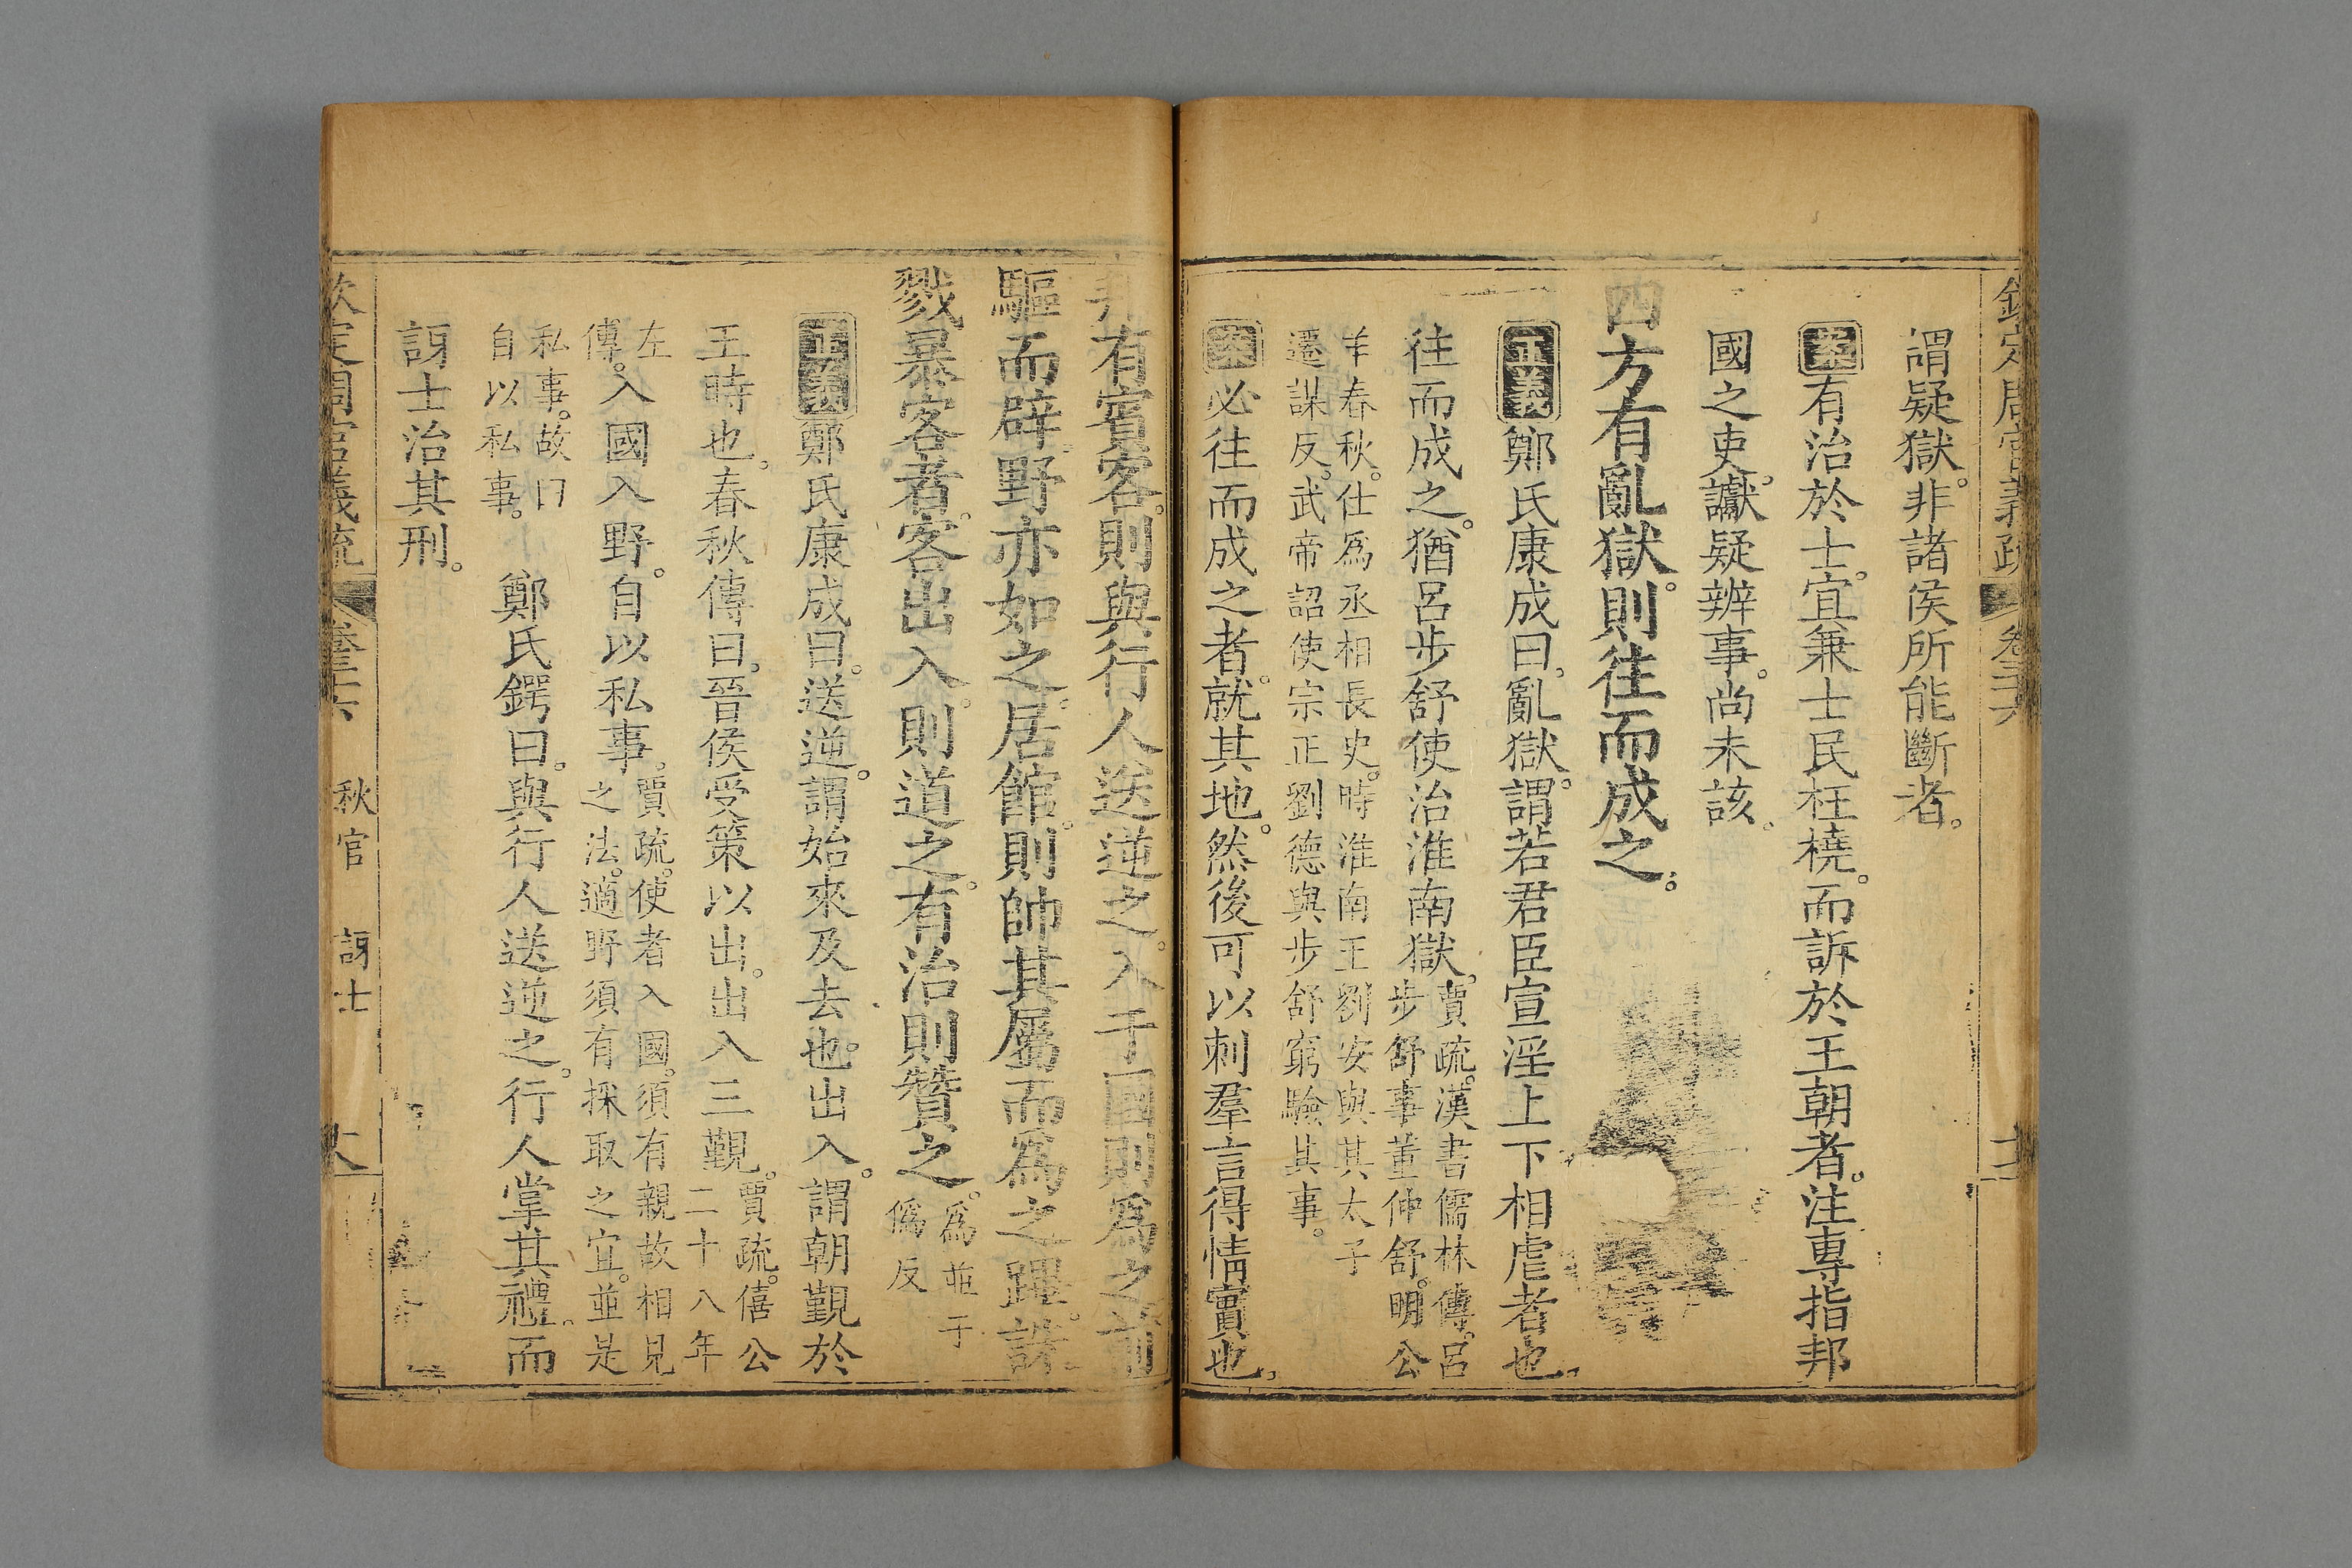 欽定周官義疏 卷三十六
謂疑獄。非諸侯所能斷者。
案有治於士。宜兼士民枉橈。而訴於王朝者。注專指邦
國之吏。讞疑辨事。尚未該。
四方有亂獄。則往而成之。
正義鄭氏康成曰。亂獄。謂若君臣宣淫上下相虐者也。
往而成之。猶呂步舒使治淮南獄。賈疏。漢書儒林傳。呂
步舒事董仲舒。明公
羊春秋。仕爲丞相長史。時淮南王劉安與其太子
遷謀反。武帝詔使宗正劉德與步舒窮驗其事。
案必往而成之者。就其地。然後可以刺羣言得情實也。
邦有賓客。則與行人送逆之。入于國則爲之前
驅而辟。野亦如之。居館。則帥其屬而爲之蹕。誅
戮暴客者。客出入。則道之。有治則贊之。爲並于
僞反
正義鄭氏康成曰。送逆。謂始來及去也。出入。謂朝覲於
王時也。春秋傳曰。晉侯受策以出。出入三覲。賈疏。僖公
二十八年
左
傳。入國入野。自以私事。賈疏。使者入國。須有親故相見
之法。適野須有採取之宜。並是
私事。故曰
自以私事。鄭氏鍔曰。與行人送逆之。行人掌其禮。而
訝士治其刑。
欽定周官義疏 卷三十六 秋官 訝士